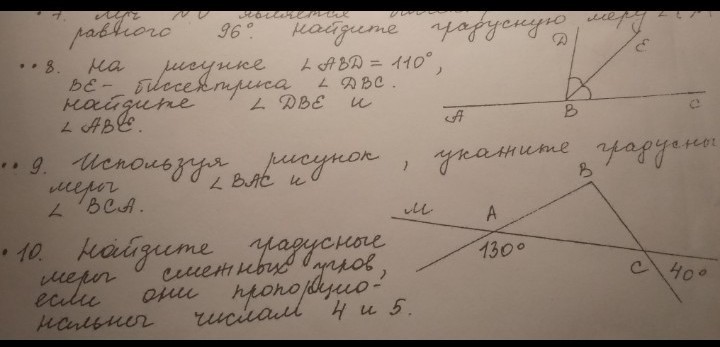 равного 96°. Найдите градусную меру
••8. На рисунке ∠ABD = 110°,
BE – биссектриса ∠DBC.
Найдите ∠DBE и
∠ABE.
D
E
A
B
C
••9. Используя рисунок, укажите градусны
меры ∠BAC и
∠BCA.
B
M
A
130°
C
40°
•10. Найдите градусные
меры смежных углов,
если они пропорцио-
нальны числам 4 и 5.